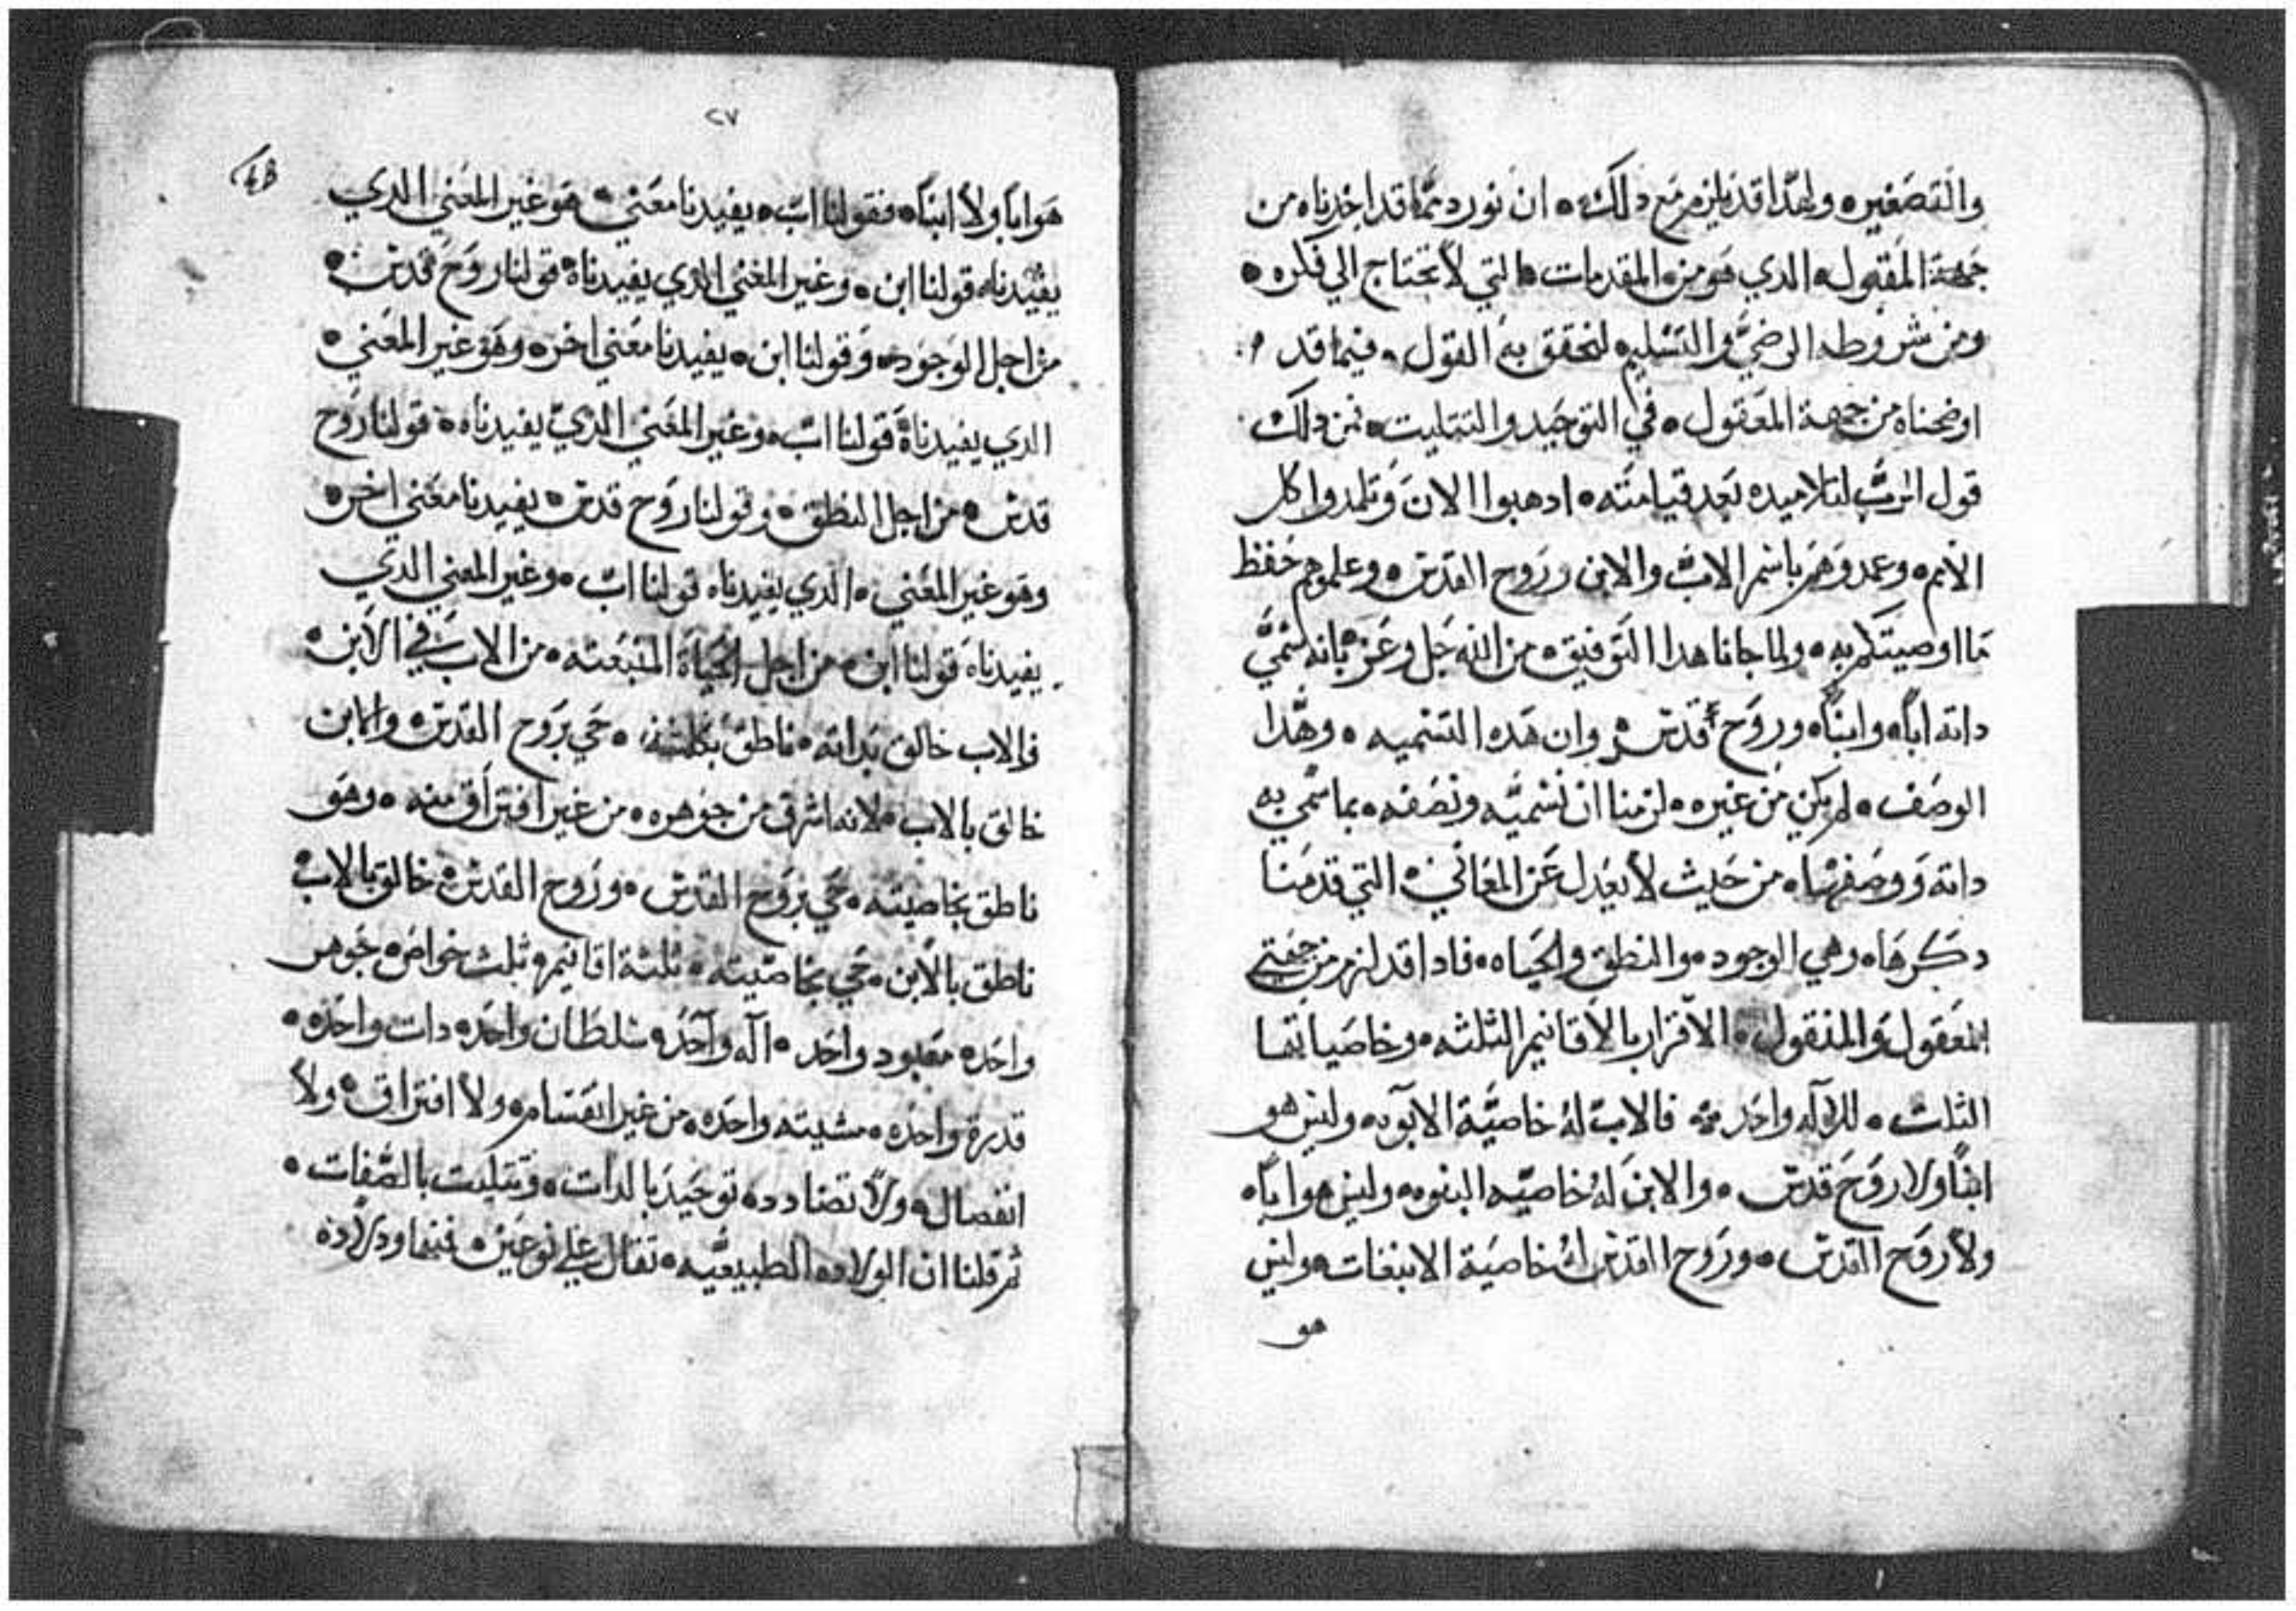 والتصغير ولهدا قد يلزم مع دلك ان نورد مما قد اخدناه من
جهة المقبول الدي هو من المقدمات التي لا تحتاج الي فكره
ومن شروطه الرضي والتسليم لنحقق به القول فيما قد
اوضحناه من جهة المعقول في التوحيد والتتليت فمن دلك
قول الرب لتلاميده بعد قيامته ادهبوا الان وتلمدوا كل
الامم وعمدوهم باسم الاب والابن وروح القدس وعلموهم حفظ
ما اوصيتكم به ولما جانا هدا التوفيق من الله جل وعز بانه سمي
داته ابا وابنا وروح قدس وان هده التسميه وهدا
الوصف لم يكن من غيره لزمنا ان نسميه ونصفه بما سمي به
داته ووصفها من حيث لا يعدل عن المعاني التي قدمنا
دكرها وهي الوجود والنطق والحياه فادا قد لزم من جهتي
المعقول والمنقول الاقرار بالاقانيم الثلثه وخاصياتها
الثلث للاله واحد فالاب له خاصية الابوه وليس هو
ابنا ولا روح قدس والابن له خاصيه البنوه وليس هو ابا
ولا روح القدس وروح القدس له خاصية الانبغات وليس
هو
٢٧
هو ابا ولا ابنا فقولنا اب يفيدنا معني هو غير المعني الدي
يفيدناه قولنا ابن وغير المعني الدي يفيدناه قولنا روح قدس
من اجل الوجود وقولنا ابن يفيدنا معني اخر وهو غير المعني
الدي يفيدناه قولنا اب وغير المعني الدي يفيدناه قولنا روح
قدس من اجل النطق وقولنا روح قدس يفيدنا معني اخر
وهو غير المعني الدي يفيدناه قولنا اب وغير المعني الدي
يفيدناه قولنا ابن من اجل الحياة المنبعته من الاب في الابن
فالاب خالق بداته ناطق بكلمته حي بروح القدس والابن
خالق بالاب لانه اشرق من جوهره من غير افتراق منه وهو
ناطق بخاصيته حي بروح القدس وروح القدس خالق بالاب
ناطق بالابن حي بخاصيته ثلثة اقانيم ثلث خواص جوهر
واحد معبود واحد اله واحد سلطان واحد دات واحده
قدرة واحده مشيته واحده من غير انقسام ولا افتراق ولا
انفصال ولا تضادد توحيد بالدات وتتليت بالصفات
ثم قلنا ان الولاده الطبيعيه تقال علي نوعين فمنها ولاده